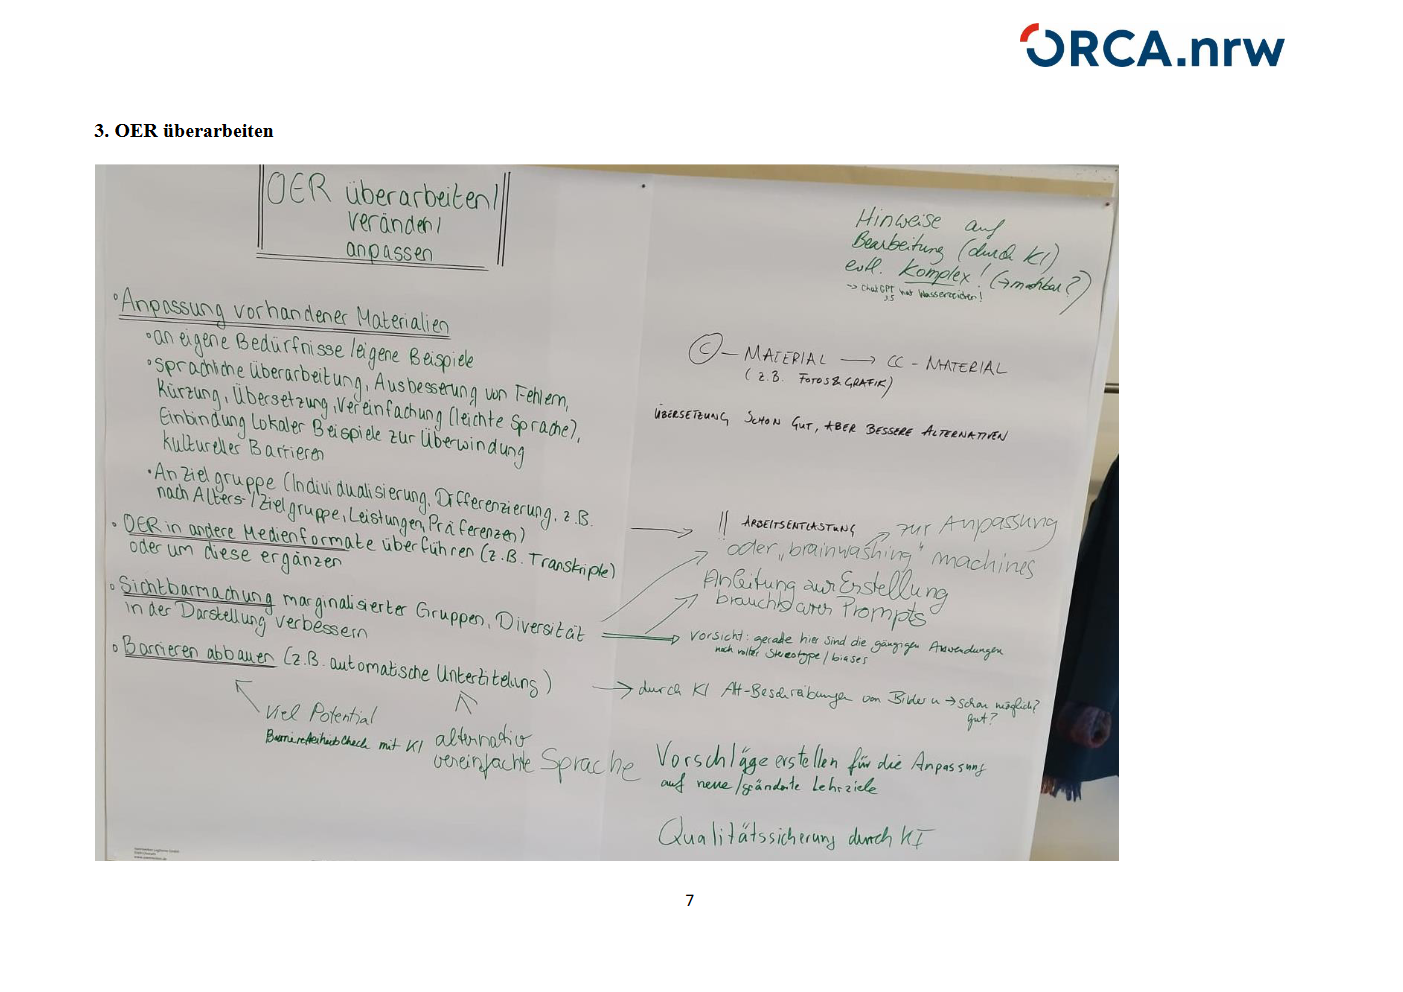 ORCA.nrw
3. OER überarbeiten
OER überarbeiten/
verändern/
anpassen
Hinweise auf
Bearbeitung (durch KI)
evtl. Komplex! (→machbar?)
→ ChatGPT hat Wasserzeichen!
3,5
• Anpassung vorhandener Materialien
• an eigene Bedürfnisse/eigene Beispiele
• sprachliche Überarbeitung, Ausbesserung von Fehlern,
Kürzung, Übersetzung, Vereinfachung (leichte Sprache),
Einbindung lokaler Beispiele zur Überwindung
kultureller Barrieren
• An Zielgruppe (Individualisierung, Differenzierung, z.B.
nach Alters-/Zielgruppe, Leistungen, Präferenzen)
• OER in andere Medienformate überführen (z.B. Transkripte)
oder um diese ergänzen
• Sichtbarmachung marginalisierter Gruppen, Diversität
in der Darstellung verbessern
• Barrieren abbauen (z.B. automatische Untertitelung)
Viel Potential
Barrierefreiheitscheck mit KI
alternativ
vereinfachte Sprache
© – MATERIAL → CC - MATERIAL
(z.B. FOTOS & GRAFIK)
ÜBERSETZUNG SCHON GUT, ABER BESSERE ALTERNATIVEN
!! ARBEITSENTLASTUNG → zur Anpassung
oder „brainwashing" machines
Anleitung zur Erstellung
brauchbarer Prompts
Vorsicht: gerade hier sind die gängigen Anwendungen
noch voller Stereotype/biases
→ durch KI Alt-Beschreibungen von Bildern → schon möglich?
gut?
Vorschläge erstellen für die Anpassung
auf neue/geänderte Lehrziele
Qualitätssicherung durch KI
7